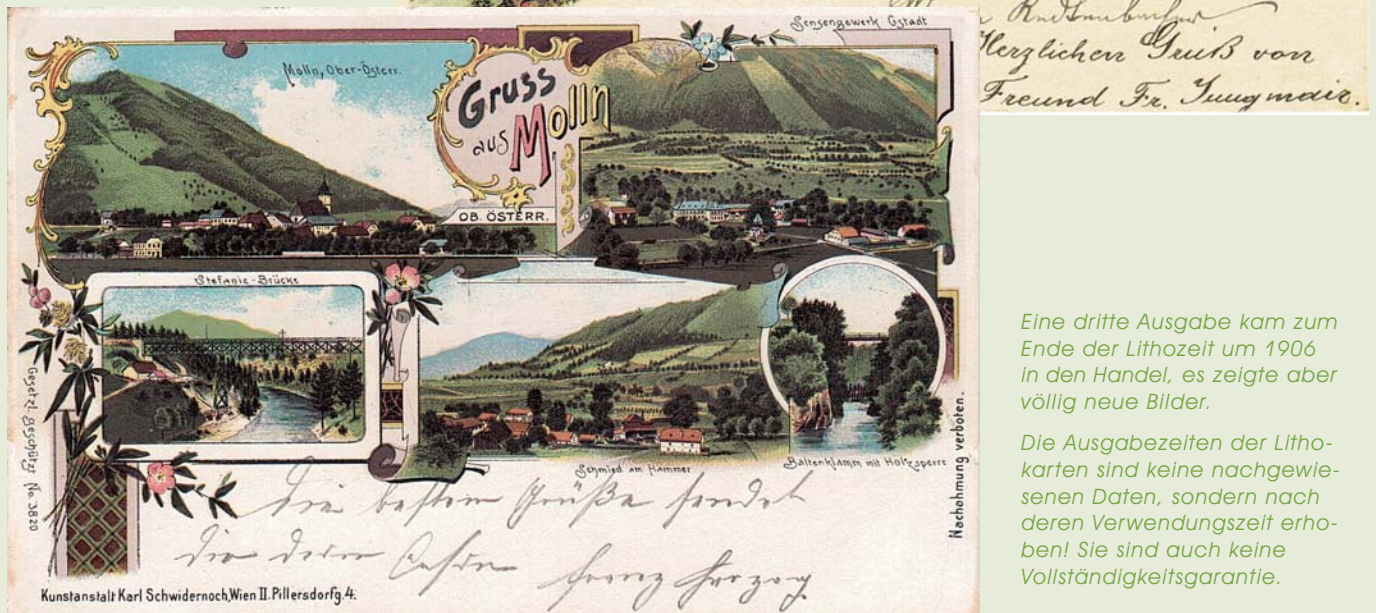 Redtenbacher
Herzlichen Gruß von
Freund Fr. Jungmair.
Sensengewerk Gstadt
Molln, Ober-Österr.
Gruss
aus
Molln
OB. ÖSTERR.
Stefanie-Brücke
Schmied am Hammer
Baltenklamm mit Holzsperre
Gesetzl. geschützt No. 3820
Nachahmung verboten.
Die besten Grüße sendet
dir dein
Franz Herzog
Kunstanstalt Karl Schwidernoch, Wien II. Pillersdorfg. 4.
Eine dritte Ausgabe kam zum
Ende der Lithozeit um 1906
in den Handel, es zeigte aber
völlig neue Bilder.
Die Ausgabezeiten der Litho-
karten sind keine nachgewie-
senen Daten, sondern nach
deren Verwendungszeit erho-
ben! Sie sind auch keine
Vollständigkeitsgarantie.